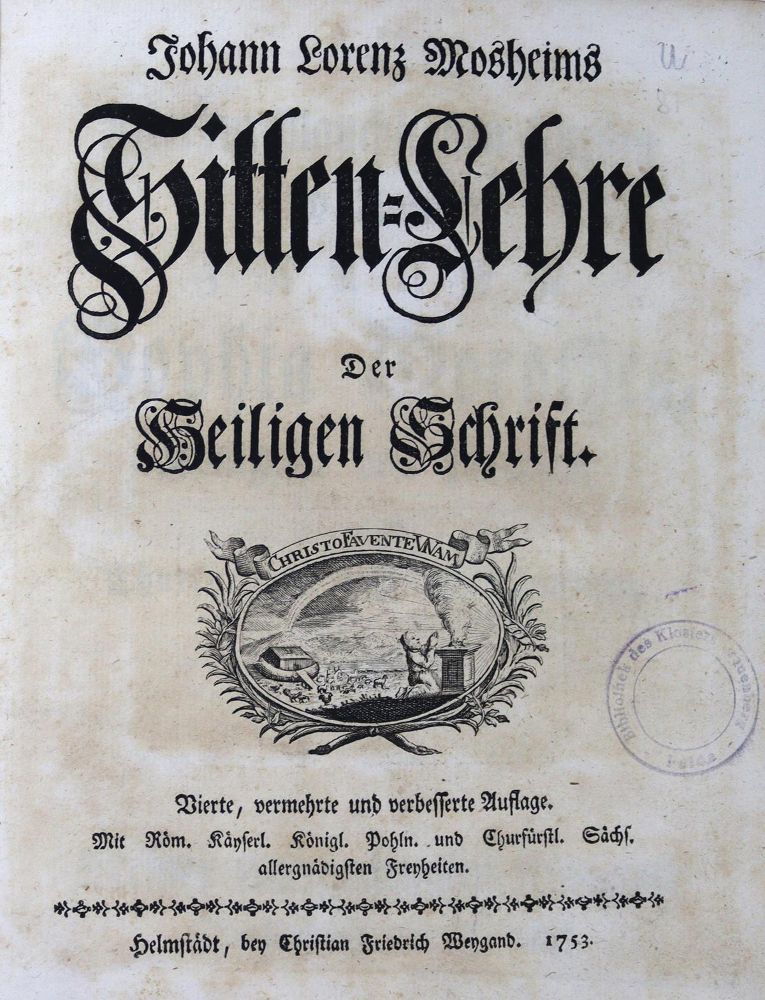 Johann Lorenz Mosheims
Sitten=Lehre
Der
Heiligen Schrift.
CHRISTO FAVENTE VNAM
Vierte, vermehrte und verbesserte Auflage.
Mit Röm. Käyserl. Königl. Pohln. und Churfürstl. Sächs.
allergnädigsten Freyheiten.
Helmstädt, bey Christian Friedrich Weygand. 1753.
Bibliothek des Kloster Frauenberg
Fulda